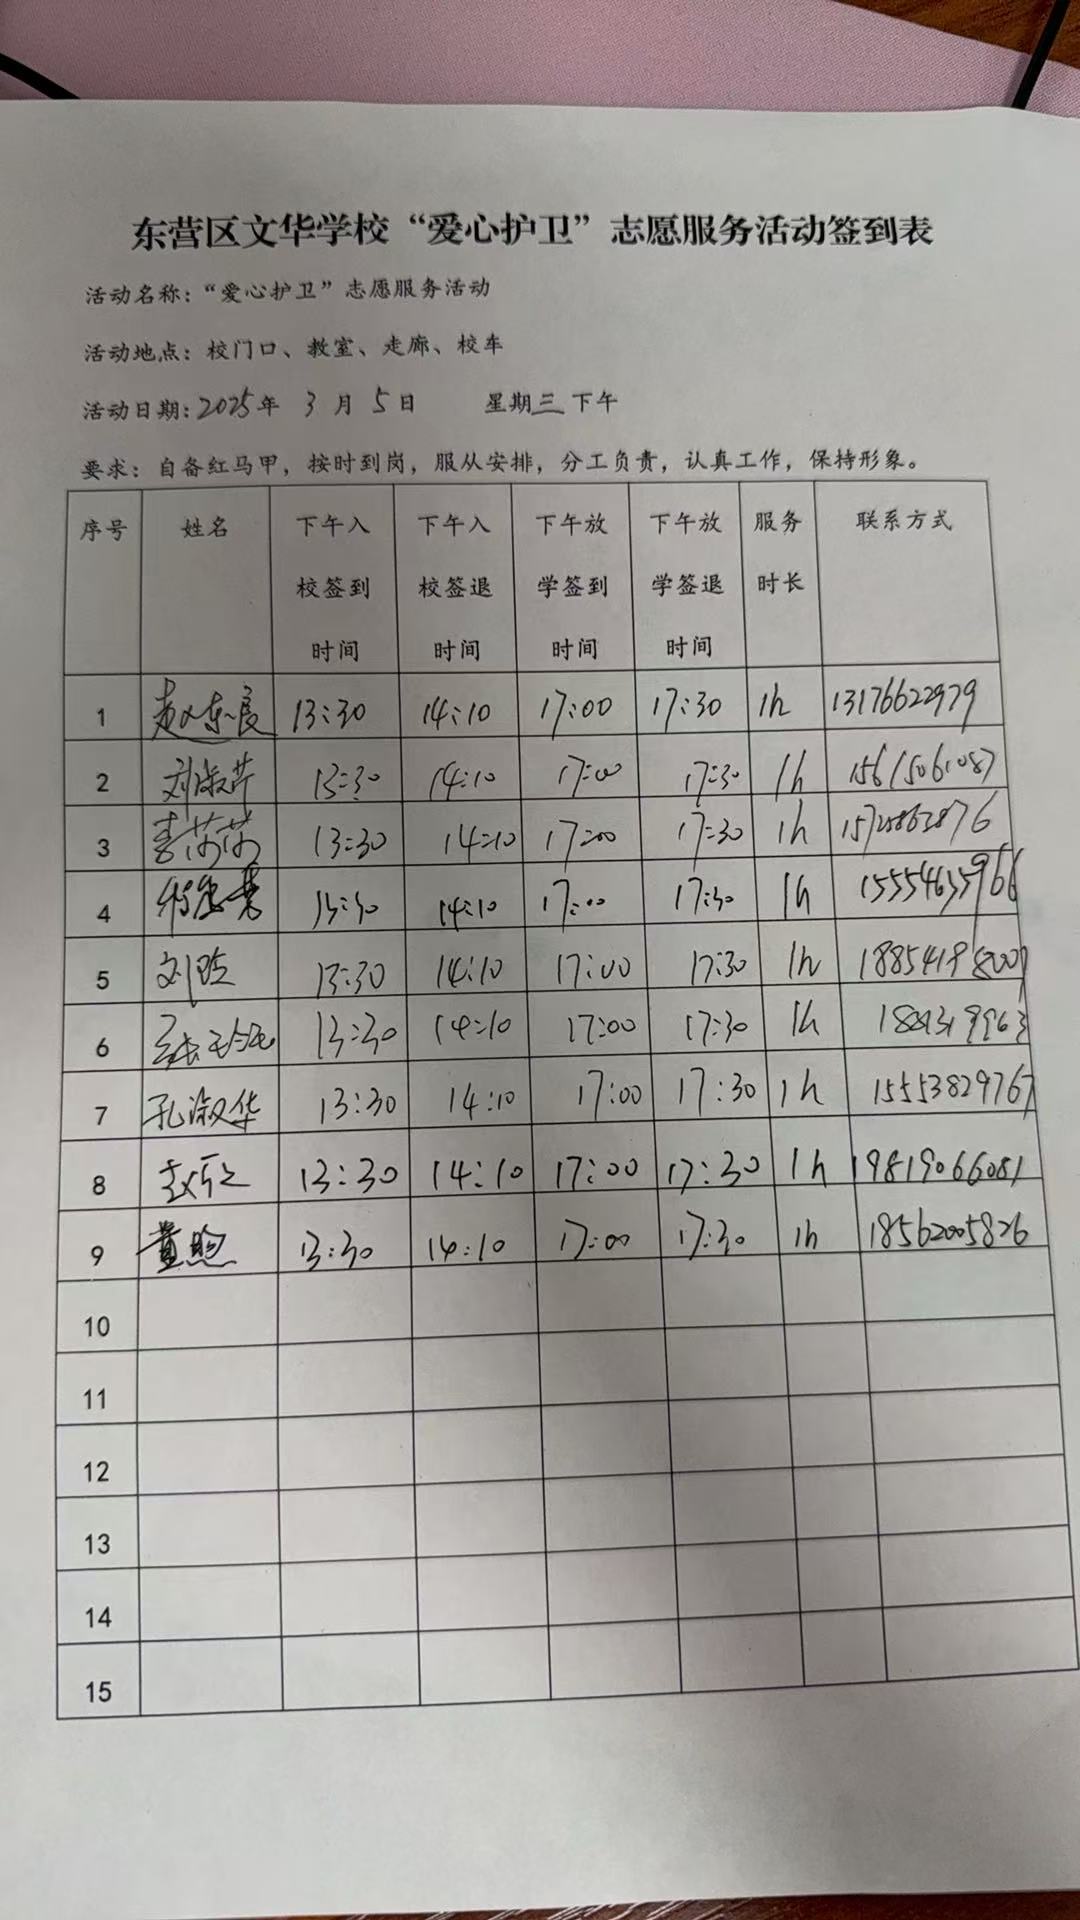 东营区文华学校“爱心护卫”志愿服务活动签到表
活动名称：“爱心护卫”志愿服务活动
活动地点：校门口、教室、走廊、校车
活动日期：2025年 3 月 5 日 星期三下午
要求：自备红马甲，按时到岗，服从安排，分工负责，认真工作，保持形象。
序号 姓名 下午入校签到时间 下午入校签退时间 下午放学签到时间 下午放学签退时间 服务时长 联系方式
1 赵东良 13:30 14:10 17:00 17:30 1h 13176622979
2 刘淑芹 13:30 14:10 17:00 17:30 1h 15615061087
3 13:30 14:10 17:00 17:30 1h
4 13:30 14:10 17:00 17:30 1h 15554635966
5 13:30 14:10 17:00 17:30 1h
6 13:30 14:10 17:00 17:30 1h
7 孔淑华 13:30 14:10 17:00 17:30 1h 15553829767
8 13:30 14:10 17:00 17:30 1h 19819066081
9 董煦 13:30 14:10 17:00 17:30 1h 18562005826
10
11
12
13
14
15